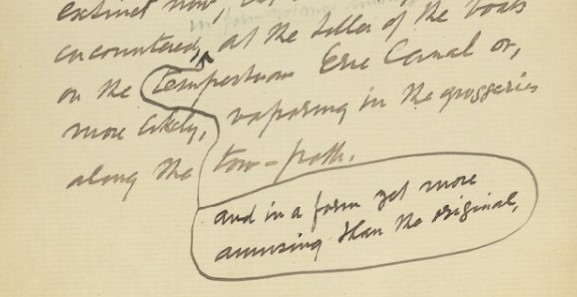 extinct now,
encountered, at the tiller of the boats
on the tempestuous Erie Canal or,
more likely, vaporing in the groggeries
along the tow-path.
and in a form yet more
amusing than the original,